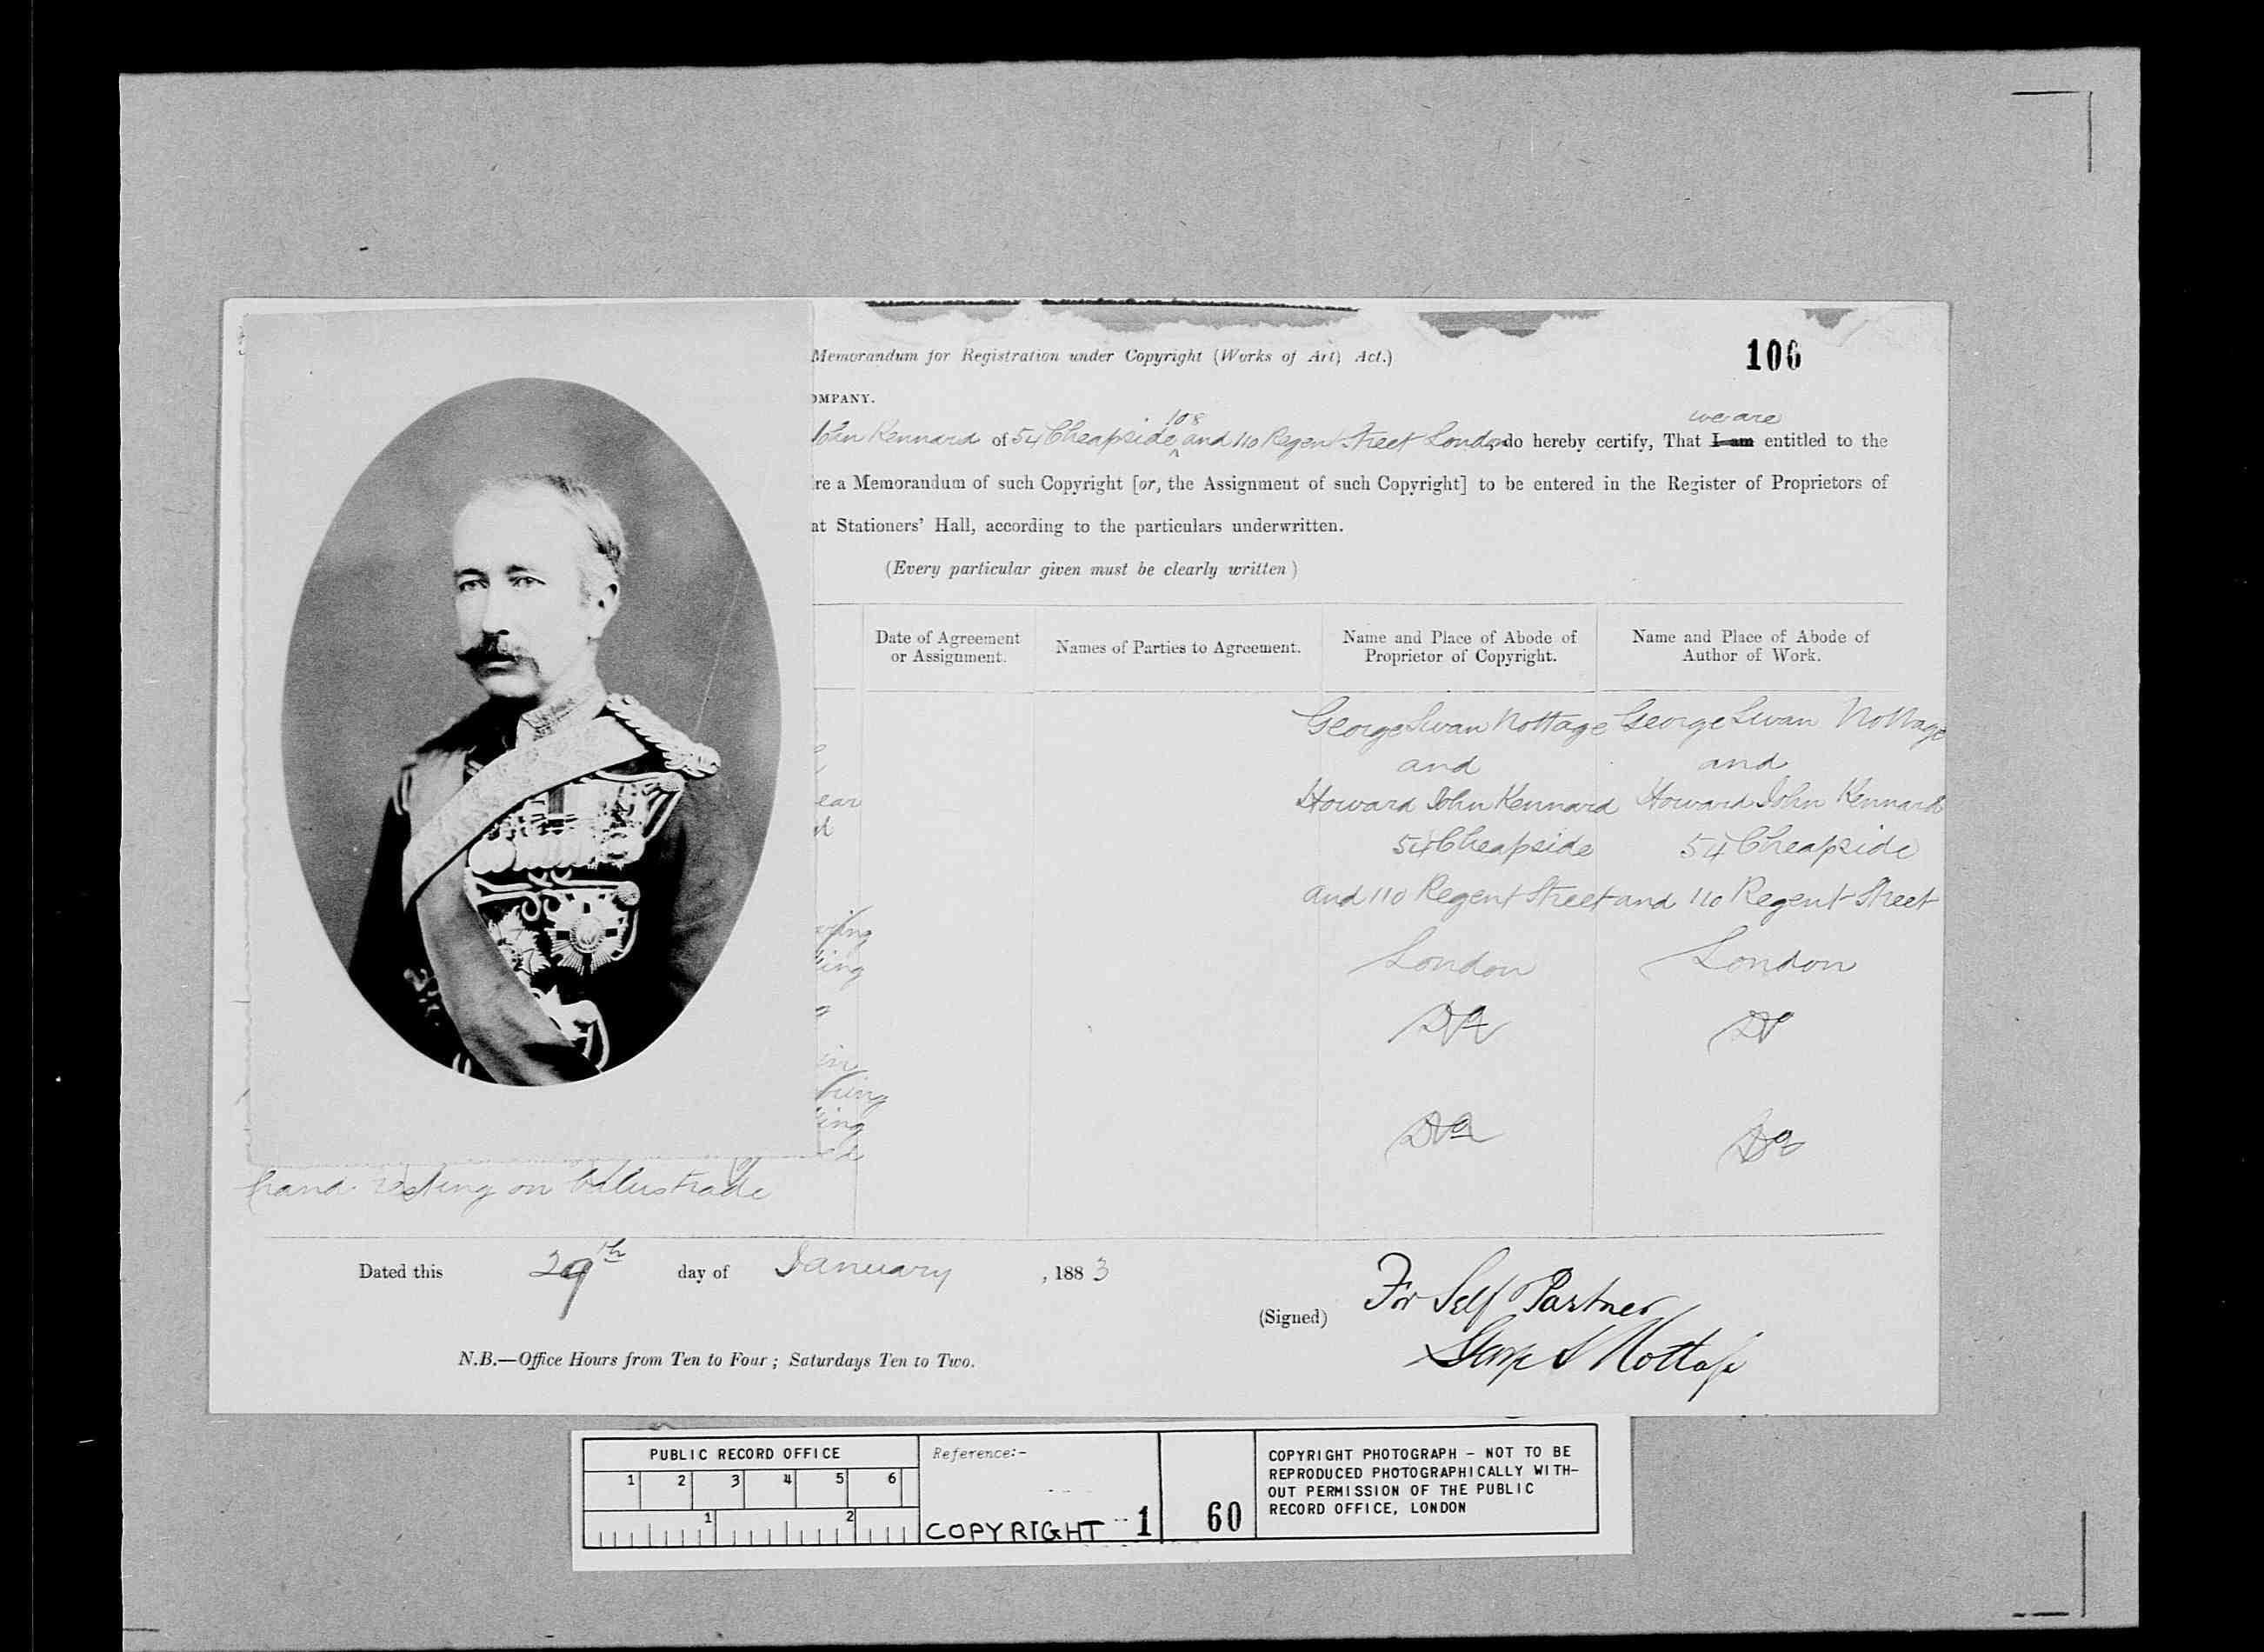 Memorandum for Registration under Copyright (Works of Art) Act.)
106
OMPANY.
108
we are
John Kennard of 54 Cheapside and 110 Regent Street London, do hereby certify, That I am entitled to the
re a Memorandum of such Copyright [or, the Assignment of such Copyright] to be entered in the Register of Proprietors of
at Stationers' Hall, according to the particulars underwritten.
(Every particular given must be clearly written)
Date of Agreement or Assignment.
Names of Parties to Agreement.
Name and Place of Abode of Proprietor of Copyright.
Name and Place of Abode of Author of Work.
George Swan Nottage George Swan Nottage
and and
Howard John Kennard Howard John Kennard
ear
54 Cheapside 54 Cheapside
and 110 Regent Street and 110 Regent Street
London London
ing
Do Do
ing
Do Do
hand resting on balustrade
Dated this 29th day of January, 1883
(Signed) For Self Partner
George S Nottage
N.B.—Office Hours from Ten to Four; Saturdays Ten to Two.
PUBLIC RECORD OFFICE
1 2 3 4 5 6
1 2
Reference:-
COPYRIGHT 1 60
COPYRIGHT PHOTOGRAPH - NOT TO BE
REPRODUCED PHOTOGRAPHICALLY WITH-
OUT PERMISSION OF THE PUBLIC
RECORD OFFICE, LONDON